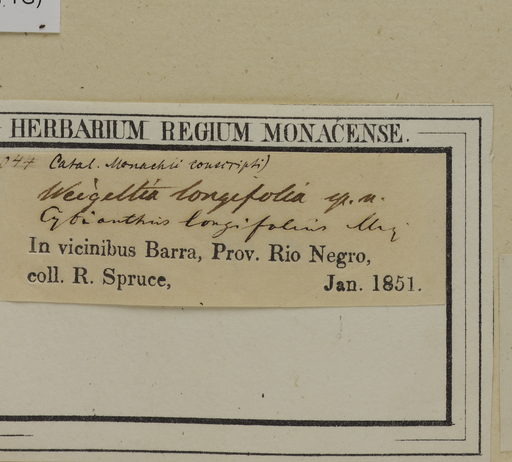 HERBARIUM REGIUM MONACENSE.
Catal. Monachii conscripti)
Weigeltia longifolia sp. n.
Cybianthus longifolius Miq
In vicinibus Barra, Prov. Rio Negro,
coll. R. Spruce, Jan. 1851.